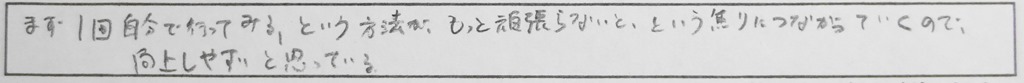 まず1回自分で行ってみる, という方法が、もっと頑張らないと、という焦りにつながっていくので、
向上しやすいと思っている